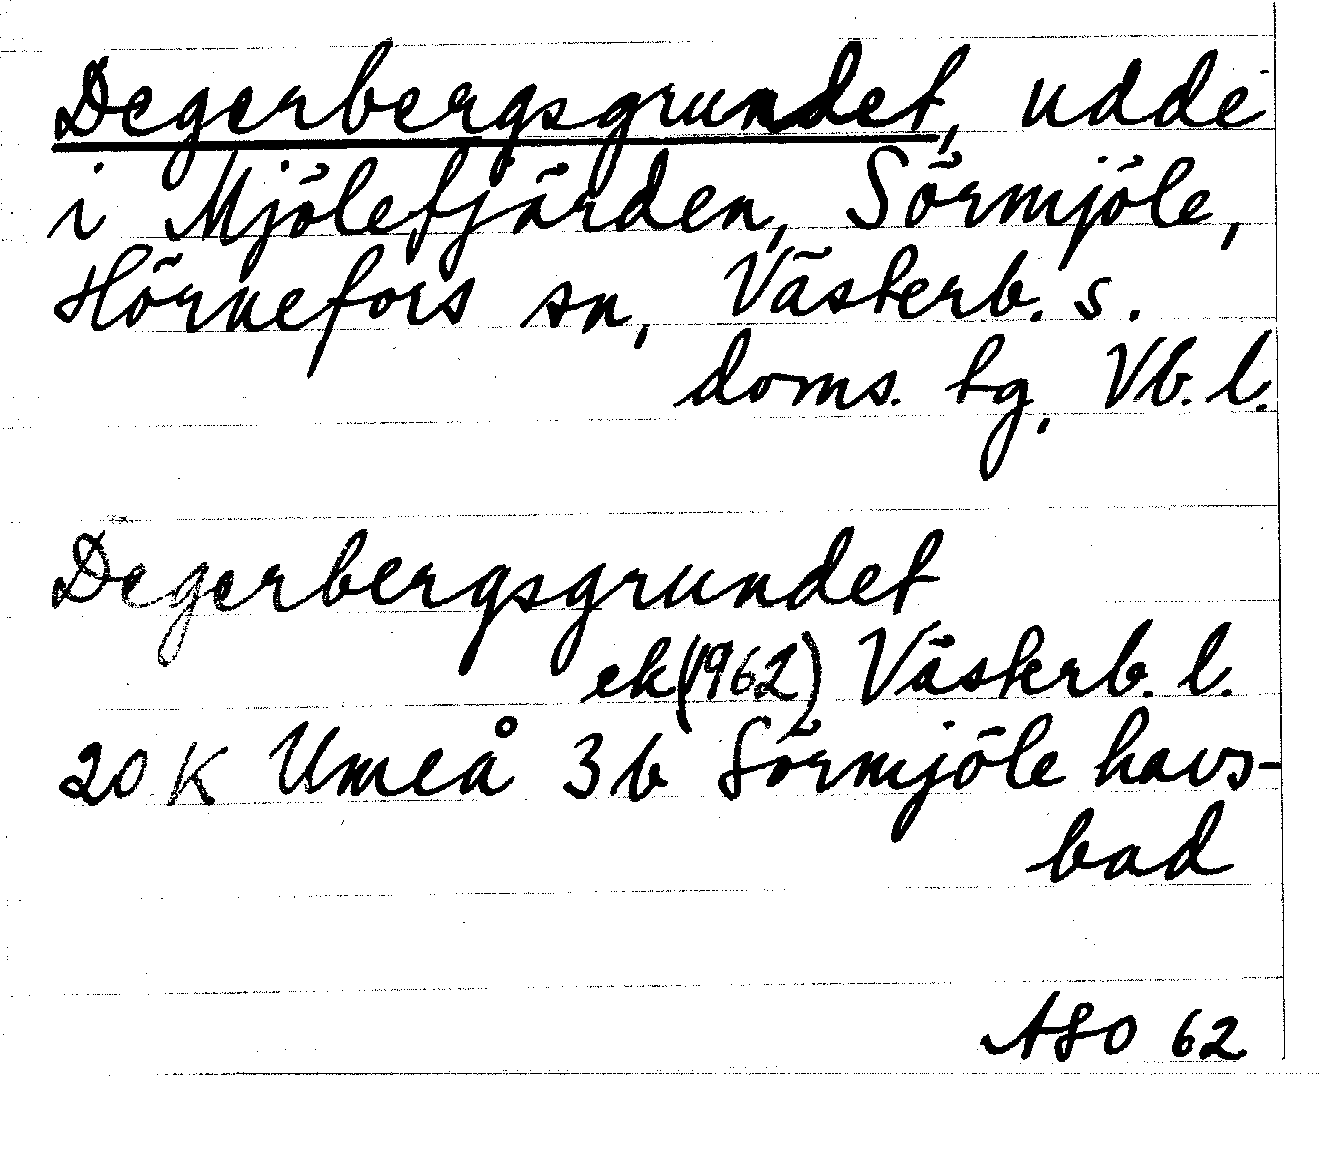 Degerbergsgrundet, udde
i Mjölefjärden, Sörmjöle,
Hörnefors sn, Västerb. s.
doms. tg, Vb. l.
Degerbergsgrundet
ek (1962) Västerb. l.
20 K Umeå 3 b Sörmjöle havs-
bad
ASO 62